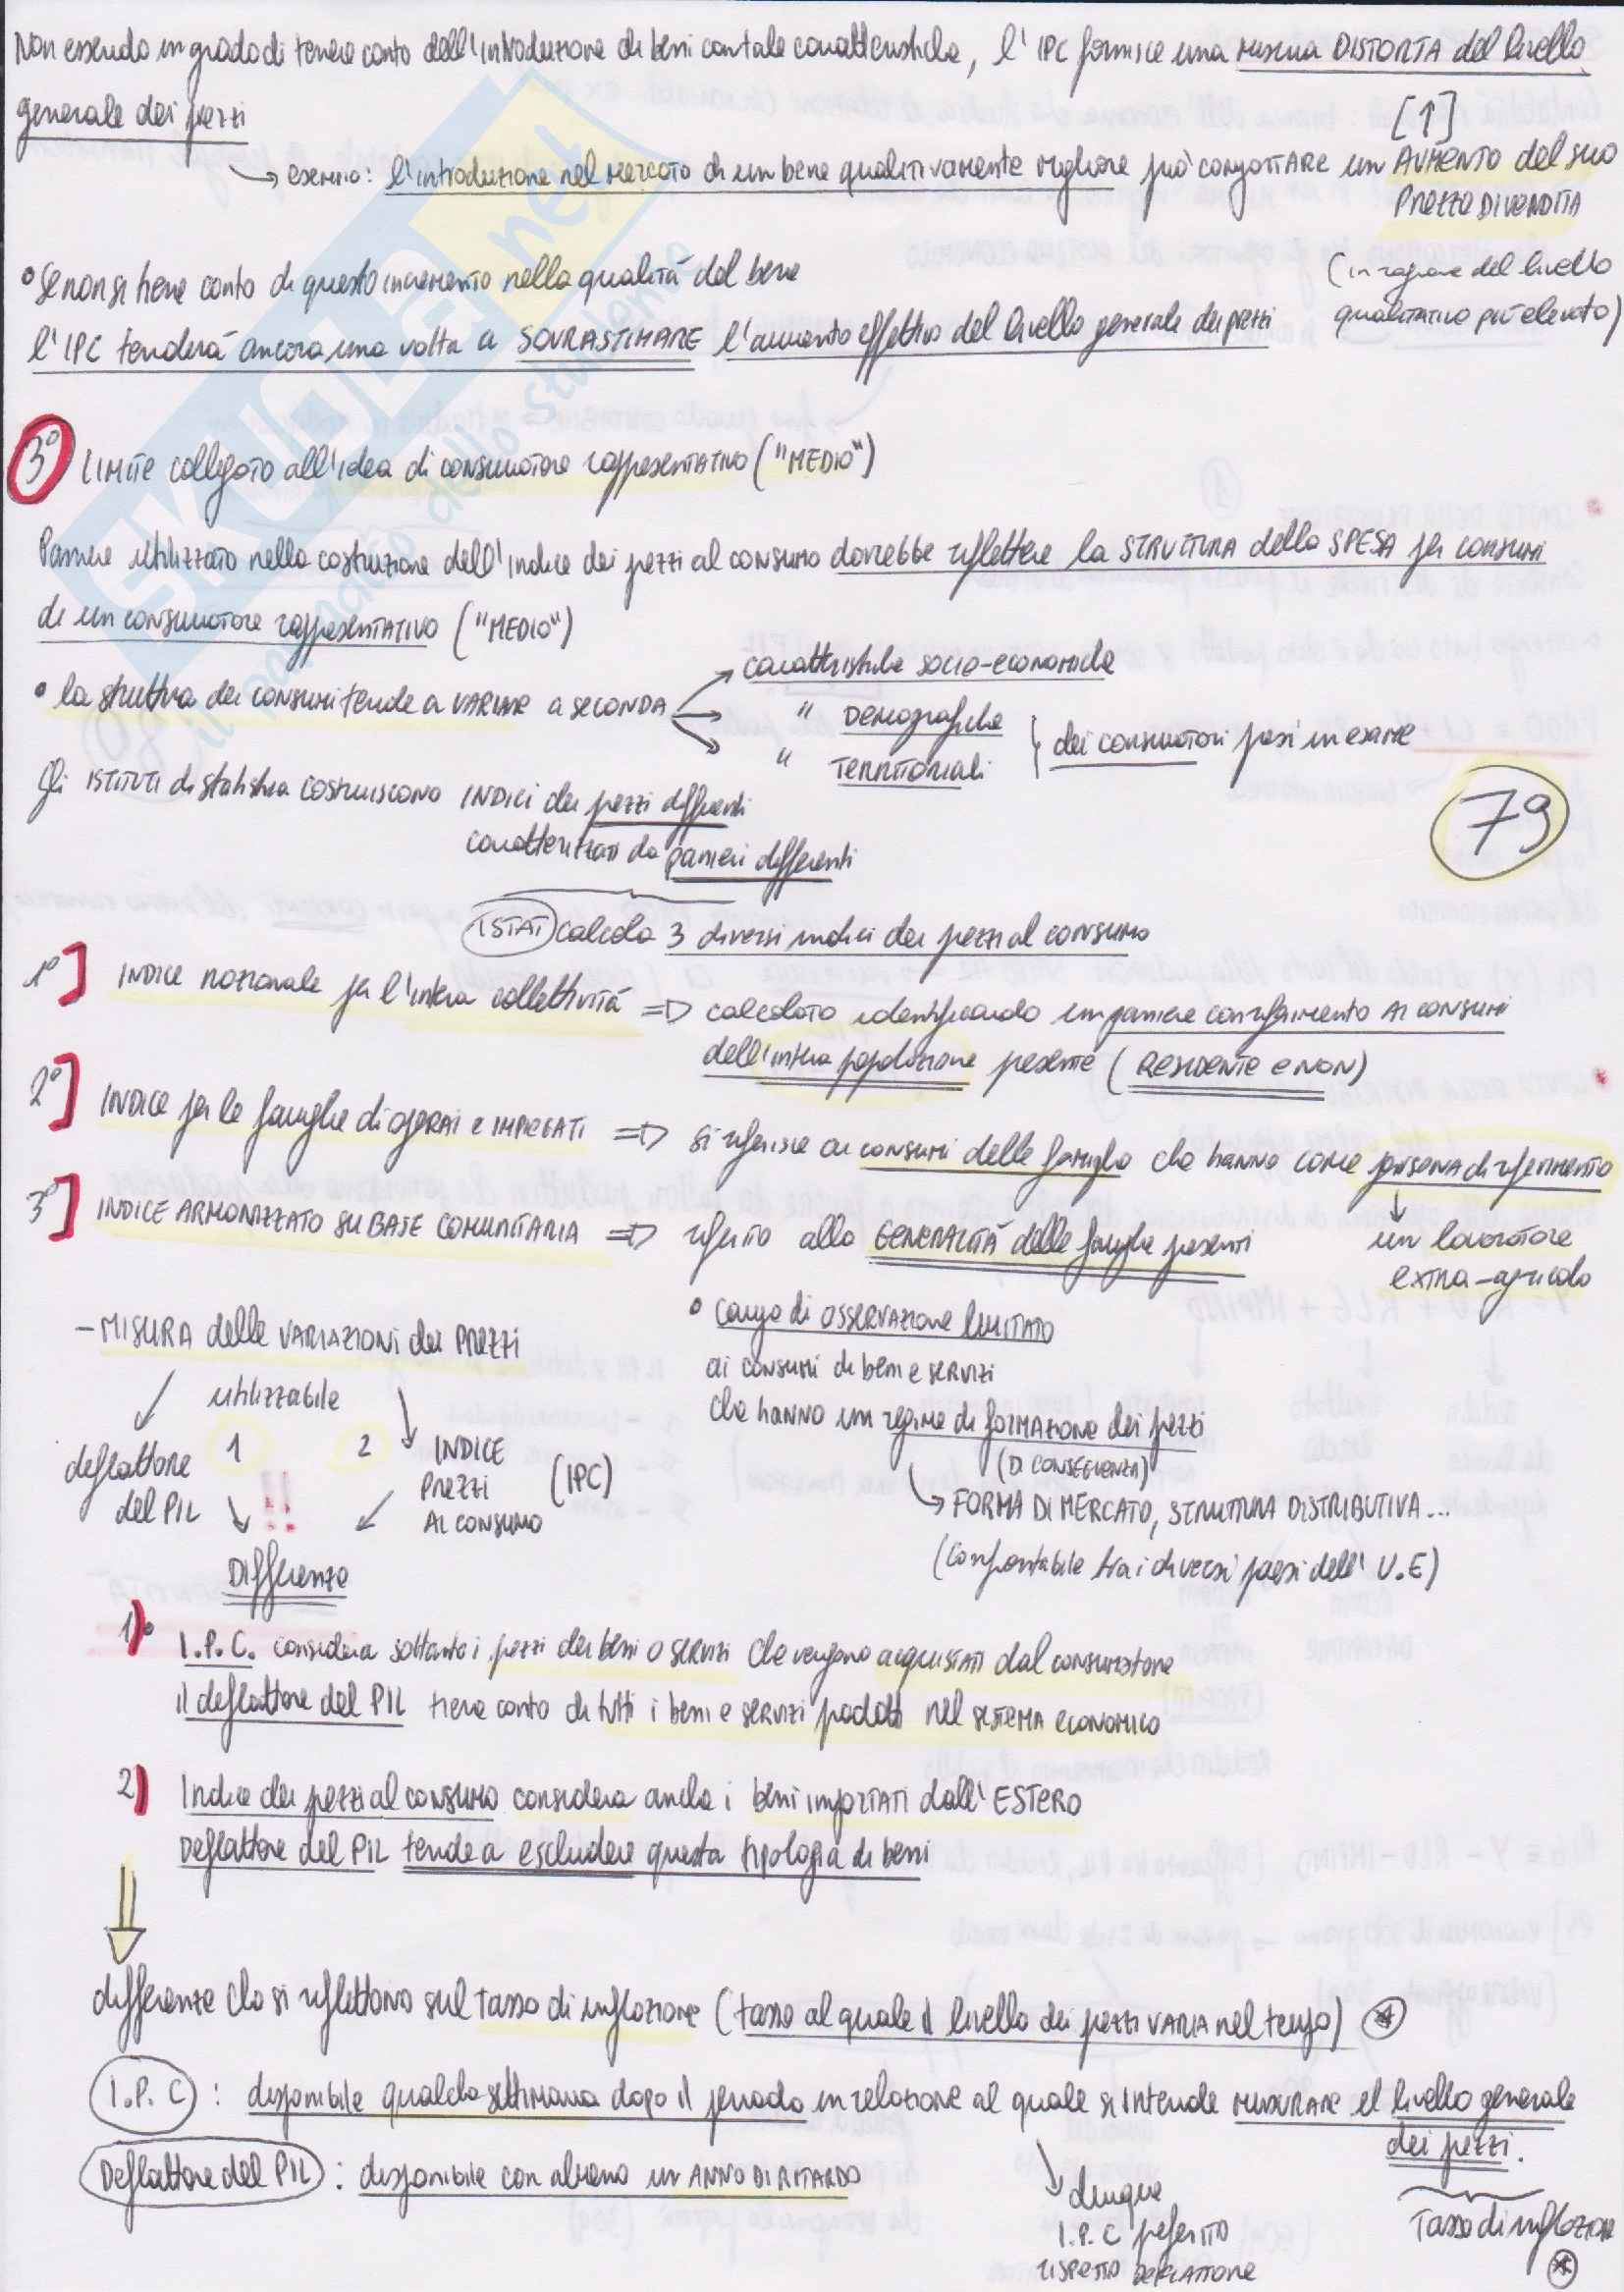 Non essendo in grado di tenere conto dell'introduzione di beni con tale caratteristiche, l'IPC fornisce una misura DISTORTA del livello
generale dei prezzi
[1]
→ esempio: l'introduzione nel mercato di un bene qualitativamente migliore può comportare un AUMENTO del suo
PREZZO DI VENDITA
(in ragione del livello
qualitativo più elevato)
• Se non si tiene conto di questo incremento nella qualità del bene
l'IPC tenderà ancora una volta a SOVRASTIMARE l'aumento effettivo del livello generale dei prezzi
3° LIMITE collegato all'idea di consumatore rappresentativo ("MEDIO")
Paniere utilizzato nella costruzione dell'indice dei prezzi al consumo dovrebbe riflettere la STRUTTURA della SPESA per consumi
di un consumatore rappresentativo ("MEDIO")
• la struttura dei consumi tende a VARIARE a SECONDA
caratteristiche socio-economiche
" DEMOgrafiche
" TERRITORIALI
dei consumatori presi in esame
Gli ISTITUTI di statistica costruiscono INDICI dei prezzi differenti
caratterizzati da panieri differenti
79
ISTAT calcola 3 diversi indici dei prezzi al consumo
1°] INDICE nazionale per l'intera collettività ⇒ calcolato identificando un paniere con riferimento AI consumi
dell'intera popolazione presente (RESIDENTE e NON)
2°] INDICE per le famiglie di OPERAI e IMPIEGATI ⇒ si riferisce ai consumi delle famiglie che hanno come persona di riferimento
↓
un lavoratore
extra-agricolo
3°] INDICE ARMONIZZATO SU BASE COMUNITARIA ⇒ riferito alla GENERALITÀ delle famiglie presenti
• campo di OSSERVAZIONE LIMITATO
ai consumi di beni e servizi
che hanno un regime di formazione dei prezzi
(DI CONSEGUENZA)
→ FORMA DI MERCATO, STRUTTURA DISTRIBUTIVA...
(Confrontabile tra i diversi paesi dell'U.E)
- MISURA delle VARIAZIONI dei PREZZI
utilizzabile
deflattore del PIL 1
2 INDICE PREZZI AL CONSUMO (IPC)
!!
Differenze
1)• I.P.C. considera soltanto i prezzi dei beni o servizi che vengono acquistati dal consumatore
il deflattore del PIL tiene conto di tutti i beni e servizi prodotti nel sistema economico
2) Indice dei prezzi al consumo considera anche i beni importati dall'ESTERO
Deflattore del PIL tende a escludere questa tipologia di beni
differenze che si riflettono sul Tasso di inflazione (tasso al quale il livello dei prezzi VARIA nel tempo) *
I.P.C : disponibile qualche settimana dopo il periodo in relazione al quale si intende MISURARE el livello generale
dei prezzi.
Tasso di inflazione
*
Deflattore del PIL : disponibile con almeno un ANNO DI RITARDO
dunque
I.P.C preferito
rispetto DEFLATTORE
SKUOLA.net
il paradiso dello studente